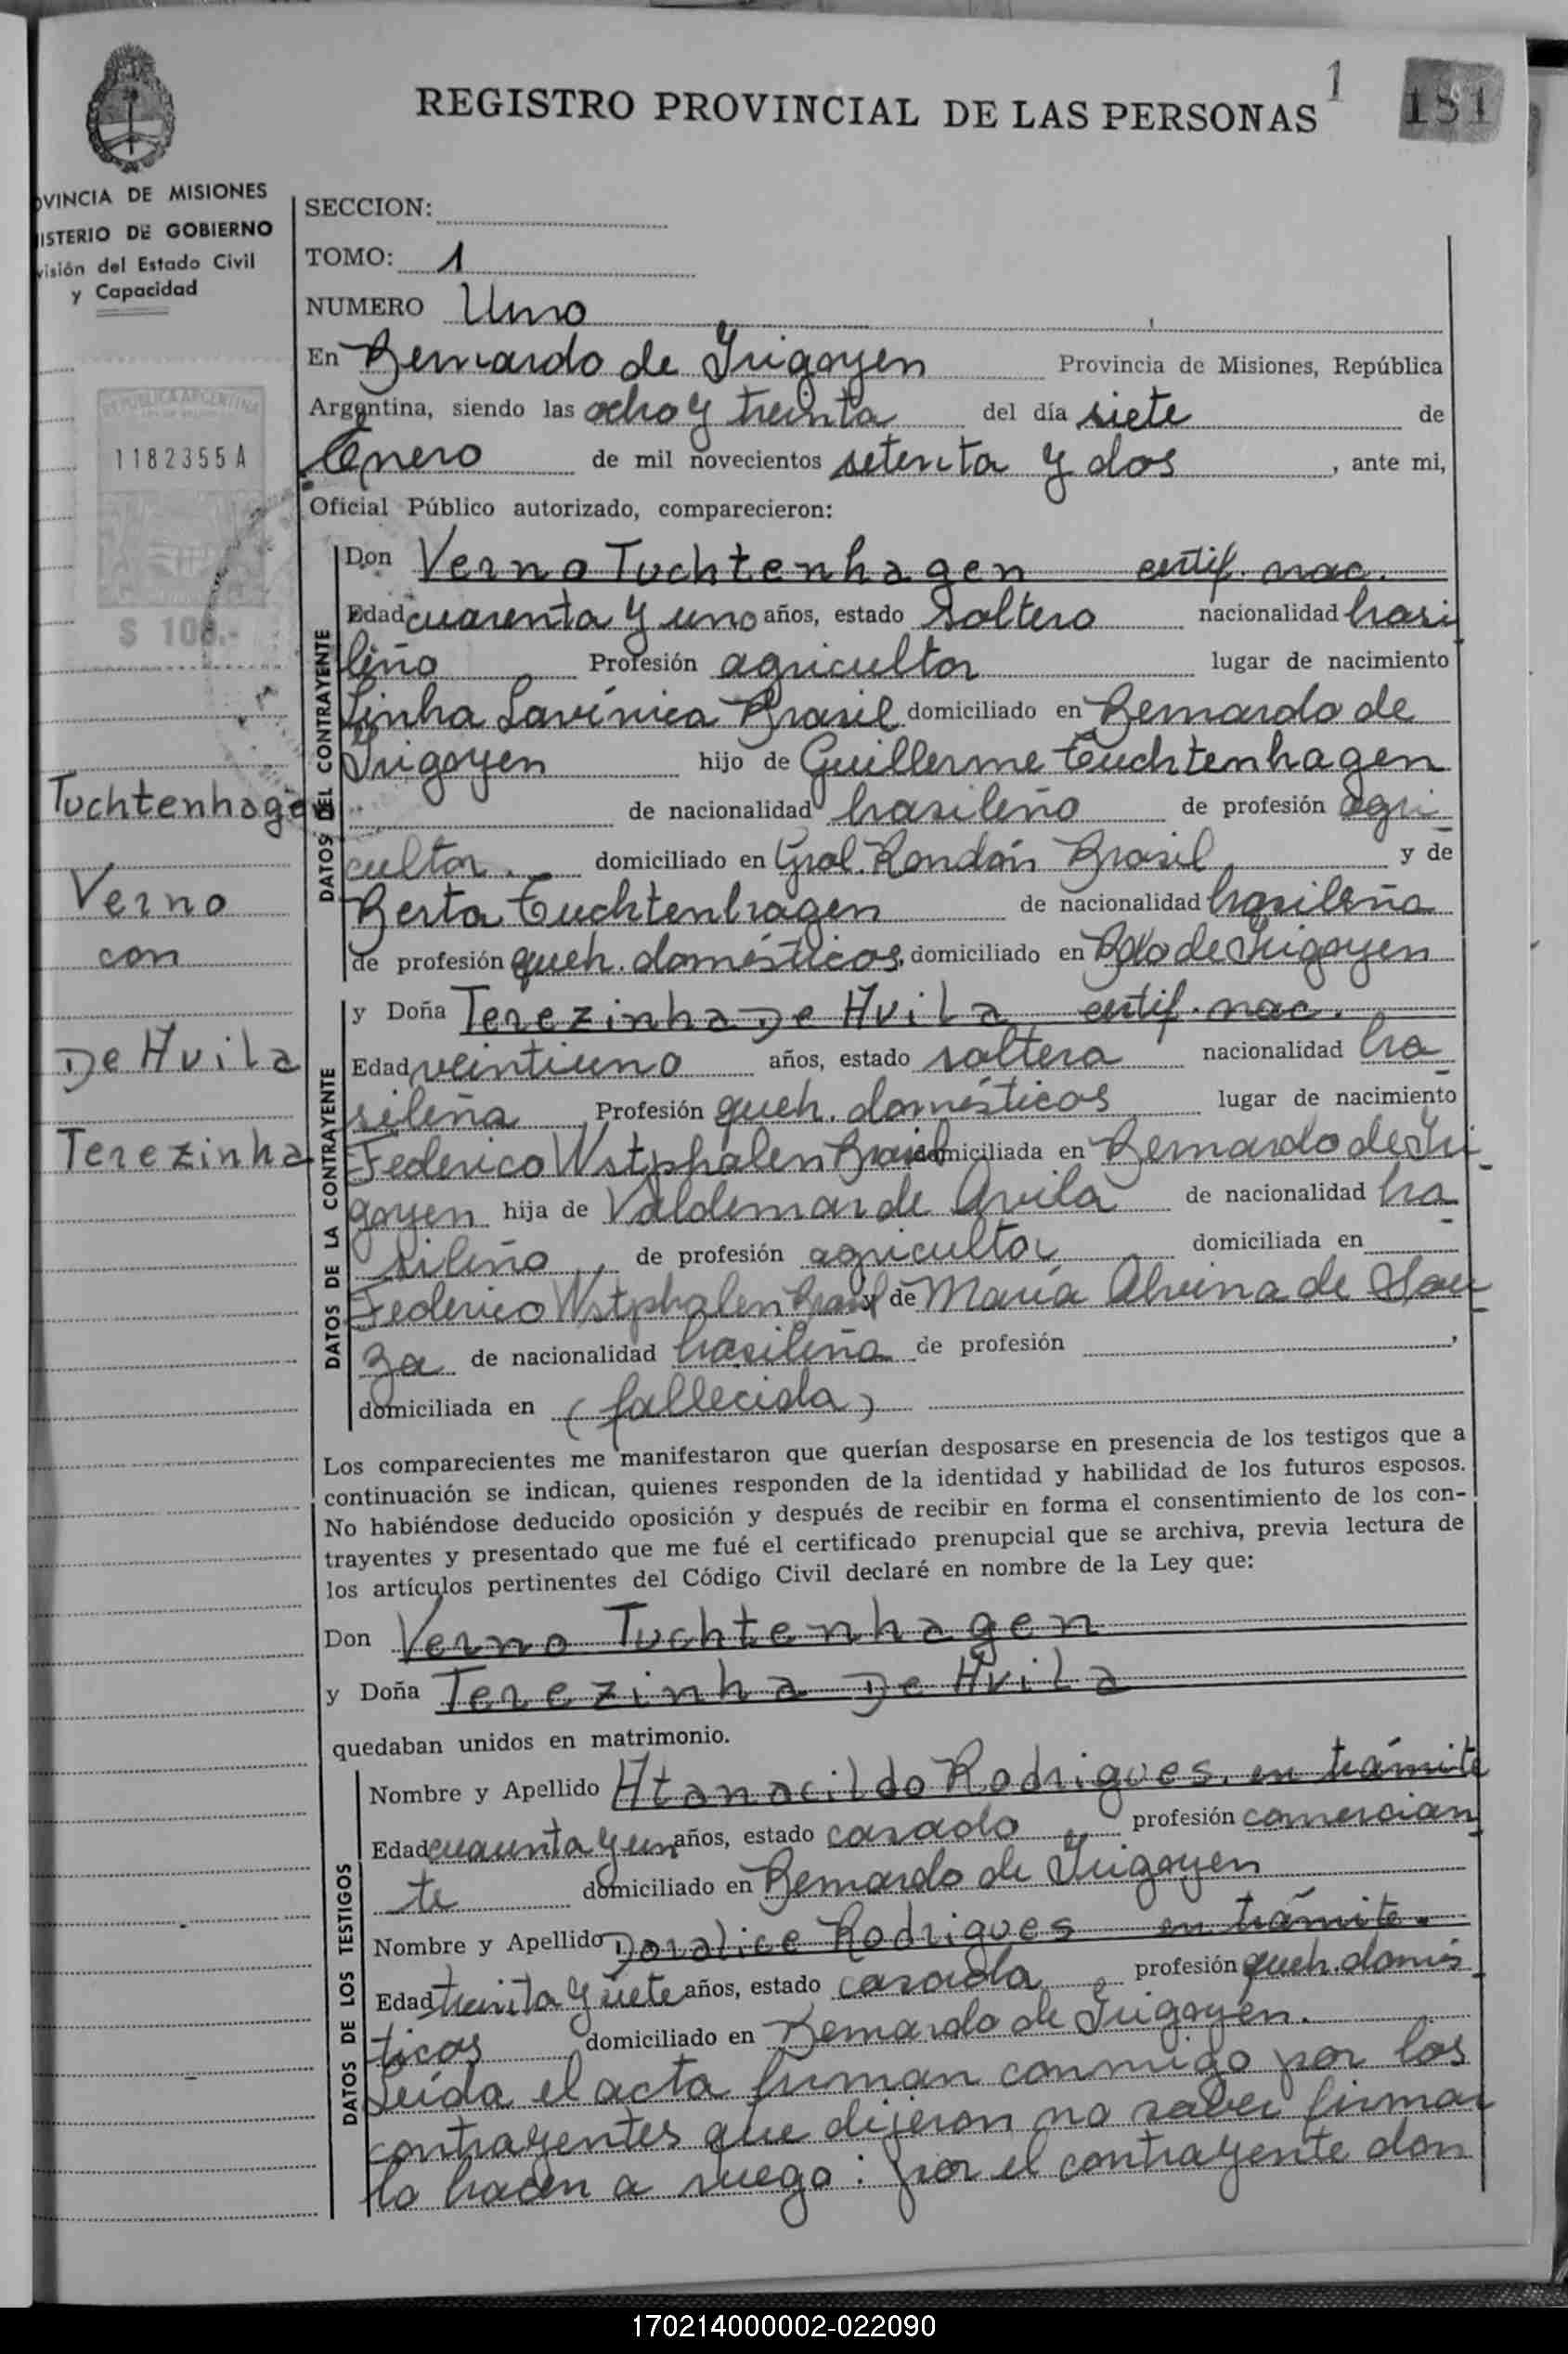 REGISTRO PROVINCIAL DE LAS PERSONAS
1
181
VINCIA DE MISIONES
ISTERIO DE GOBIERNO
visión del Estado Civil
y Capacidad
REPUBLICA ARGENTINA
1182355A
$ 100.-
Tuchtenhagen
Verno
con
De Avila
Terezinha
SECCION:
TOMO: 1
NUMERO Uno
En Bernardo de Irigoyen Provincia de Misiones, República
Argentina, siendo las ocho y treinta del día siete de
Enero de mil novecientos setenta y dos, ante mi,
Oficial Público autorizado, comparecieron:
DATOS DEL CONTRAYENTE
Don Verno Tuchtenhagen certif. nac.
Edad cuarenta y uno años, estado soltero nacionalidad brasi
leño Profesión agricultor lugar de nacimiento
Linha Lavínica Brasil domiciliado en Bernardo de
Irigoyen hijo de Guillerme Tuchtenhagen
de nacionalidad brasileño de profesión agri
cultor. domiciliado en Gral. Rondón Brasil y de
Berta Tuchtenhagen de nacionalidad brasileña
de profesión queh. domésticos, domiciliado en Bdo de Irigoyen
DATOS DE LA CONTRAYENTE
y Doña Terezinha De Avila certif. nac.
Edad veintiuno años, estado soltera nacionalidad bra
sileña Profesión queh. domésticos lugar de nacimiento
Federico Wstphalen Brasil domiciliada en Bernardo de Iri
goyen hija de Valdemar de Avila de nacionalidad bra
sileño, de profesión agricultor domiciliada en
Federico Wstphalen Brasil y de María Alvina de Sou
za de nacionalidad brasileña de profesión ,
domiciliada en (fallecida)
Los comparecientes me manifestaron que querían desposarse en presencia de los testigos que a
continuación se indican, quienes responden de la identidad y habilidad de los futuros esposos.
No habiéndose deducido oposición y después de recibir en forma el consentimiento de los con-
trayentes y presentado que me fué el certificado prenupcial que se archiva, previa lectura de
los artículos pertinentes del Código Civil declaré en nombre de la Ley que:
Don Verno Tuchtenhagen
y Doña Terezinha De Avila
quedaban unidos en matrimonio.
DATOS DE LOS TESTIGOS
Nombre y Apellido Atanacildo Rodrigues. en trámite
Edad cuarenta y un años, estado casado profesión comercian
te domiciliado en Bernardo de Irigoyen
Nombre y Apellido Doralice Rodrigues en trámite.
Edad treinta y siete años, estado casada profesión queh. domés
ticos domiciliado en Bernardo de Irigoyen.
Leída el acta firman conmigo por los
contrayentes que dijeron no saber firmar
lo hacen a ruego: por el contrayente don
170214000002-022090